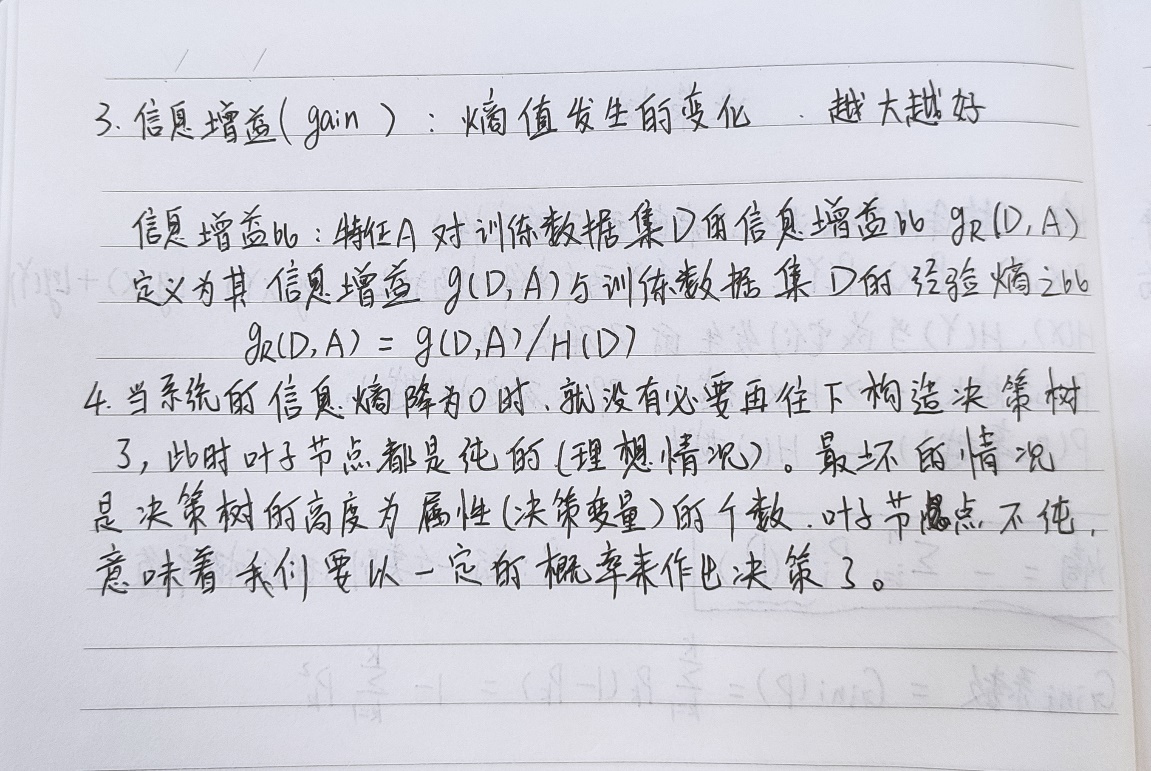 3. 信息增益(gain): 熵值发生的变化. 越大越好
信息增益比: 特征A对训练数据集D的信息增益比 gR(D,A)
定义为其信息增益 g(D,A)与训练数据集D的经验熵之比
gR(D,A) = g(D,A)/H(D)
4. 当系统的信息熵降为0时、就没有必要再往下构造决策树
了,此时叶子节点都是纯的(理想情况)。最坏的情况
是决策树的高度为属性(决策变量)的个数.叶子节点不纯,
意味着我们要以一定的概率来作出决策了。